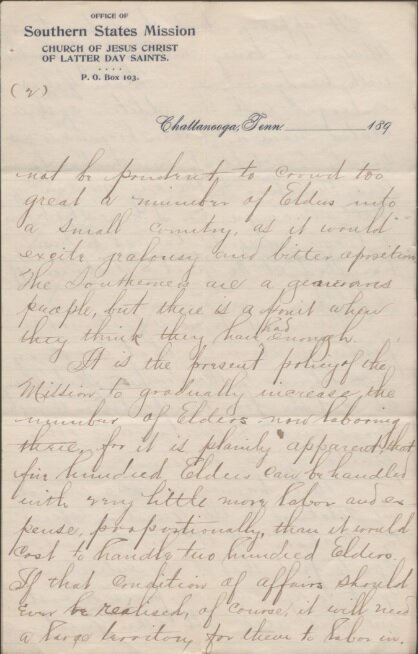 OFFICE OF
Southern States Mission
CHURCH OF JESUS CHRIST
OF LATTER DAY SAINTS.
....
P. O. Box 103.
(2)
Chattanooga, Tenn. 189
not be prudent, to crowd too
great a number of Elders into
a small country, as it would
excite jealousy and bitter oposition
The Southerners are a generous
people, but there is a point when
they think they have had enough.
It is the present policy of the
Mission to gradually increase the
number of Elders now laboring
there, for it is plainly apparent, that
five hundred Elders can be handled
with very little more labor and ex
pense, proportionally, than it would
cost to handle two hundred Elders.
If that condition of affairs should
ever be realised, of course, it will need
a large territory for them to labor in.